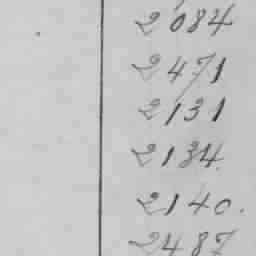 2084
2471
2131
2134.
2140.
2487